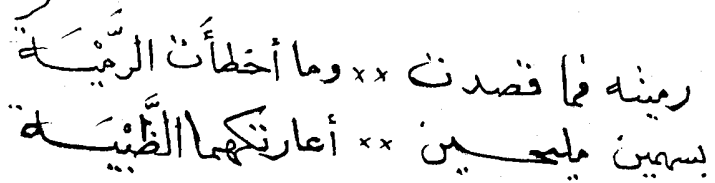 رميته فما قصدت ×× وما أخطأَت الرَّمْيَـة
بسهمين مليحـين ×× أعارتكهما الظَّبْيَـة